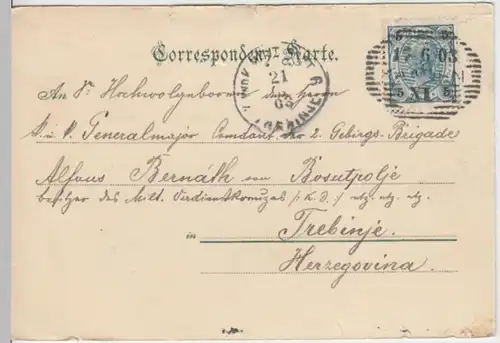 Correspondenz-Karte.
5 5
6 03
5 XI 5
21
03
TREBINJE
An Sr Hochwolgeboornen den Herrn
k. u. k. Generalmajor Comdant. der 2 Gebirgs-Brigade
Alfons Bernáth von Bosutpolje
besitzer des Milt. Verdienstkreuzes /: K. d. :/ etz. etz. etz.
in Trebinje.
Herzegovina.